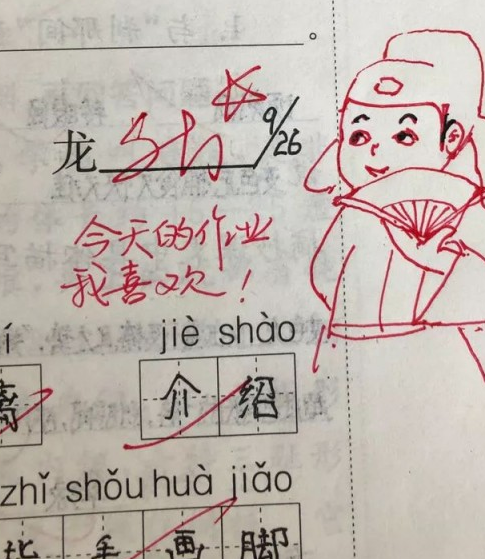 。
龙
9/26
今天的作业
我喜欢！
jiè shào
介绍
zhǐ shǒu huà jiǎo
手画脚